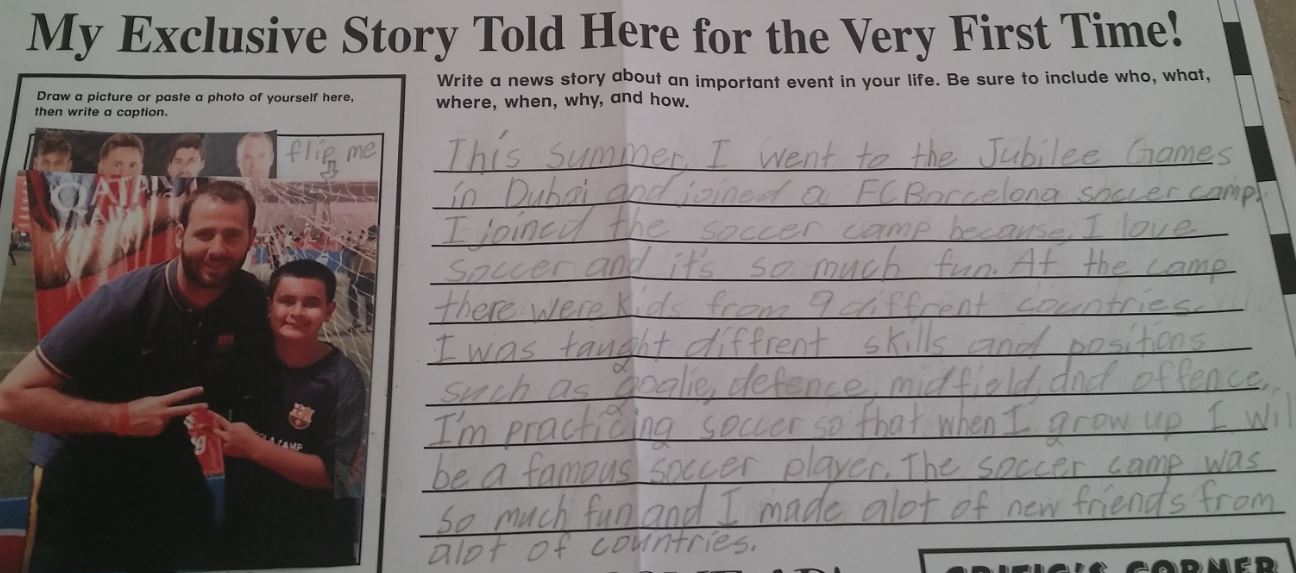 My Exclusive Story Told Here for the Very First Time!
Draw a picture or paste a photo of yourself here,
then write a caption.
flip me
QATAR
Write a news story about an important event in your life. Be sure to include who, what,
where, when, why, and how.
This summer, I went to the Jubilee Games
in Dubai and joined a FC Barcelona soccer camp.
I joined the soccer camp because, I love
soccer and it's so much fun. At the camp
there were kids from 9 diffrent countries.
I was taught diffrent skills and positions
such as goalie, defence, midfield, and offence.
I'm practicing soccer so that when I grow up I wil
be a famous soccer player. The soccer camp was
so much fun and I made alot of new friends from
alot of countries.
CORNER